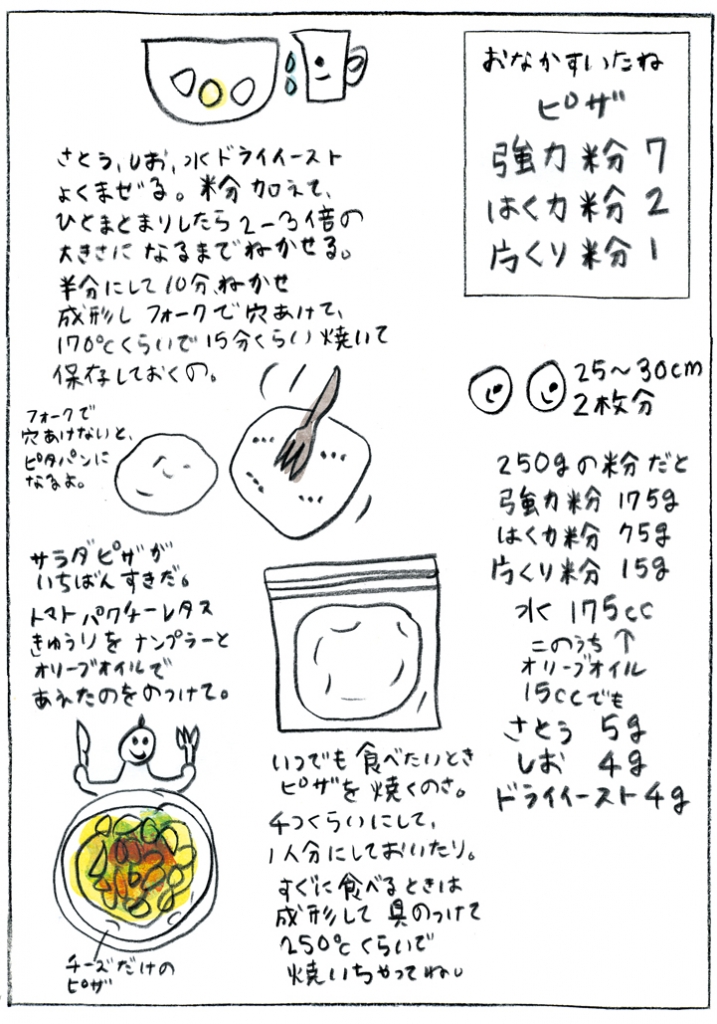 おなかすいたね
ピザ
強力粉7
はくカ粉2
片くり粉1
さとう、しお、水ドライイースト
よくまぜる。粉加えて、
ひとまとまりしたら2〜3倍の
大きさになるまでねかせる。
半分にして10分、ねかせ
成形しフォークで穴あけて、
170℃くらいで15分くらい焼いて
保存しておくの。
25〜30cm
2枚分
フォークで
穴あけないと、
ピタパンに
なるよ。
250gの粉だと
強力粉175g
はくカ粉75g
片くり粉15g
水175cc
このうち↑
オリーブオイル
15ccでも
さとう5g
しお4g
ドライイースト4g
サラダピザが
いちばんすきだ。
トマトパクチーレタス
きゅうりをナンプラーと
オリーブオイルで
あえたのをのっけて。
いつでも食べたいとき
ピザを焼くのさ。
4つくらいにして、
1人分にしておいたり。
すぐに食べるときは
成形して具のつけて
250℃くらいで
焼いちゃってね。
チーズだけの
ピザ